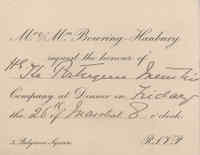 Mr & Mrs Bowring-Hanbury
request the honour of
H.E. The Portuguese Minister's
Company at Dinner on Friday
the 26th March at 8 o'clock.
5. Belgrave Square. R.S.V.P